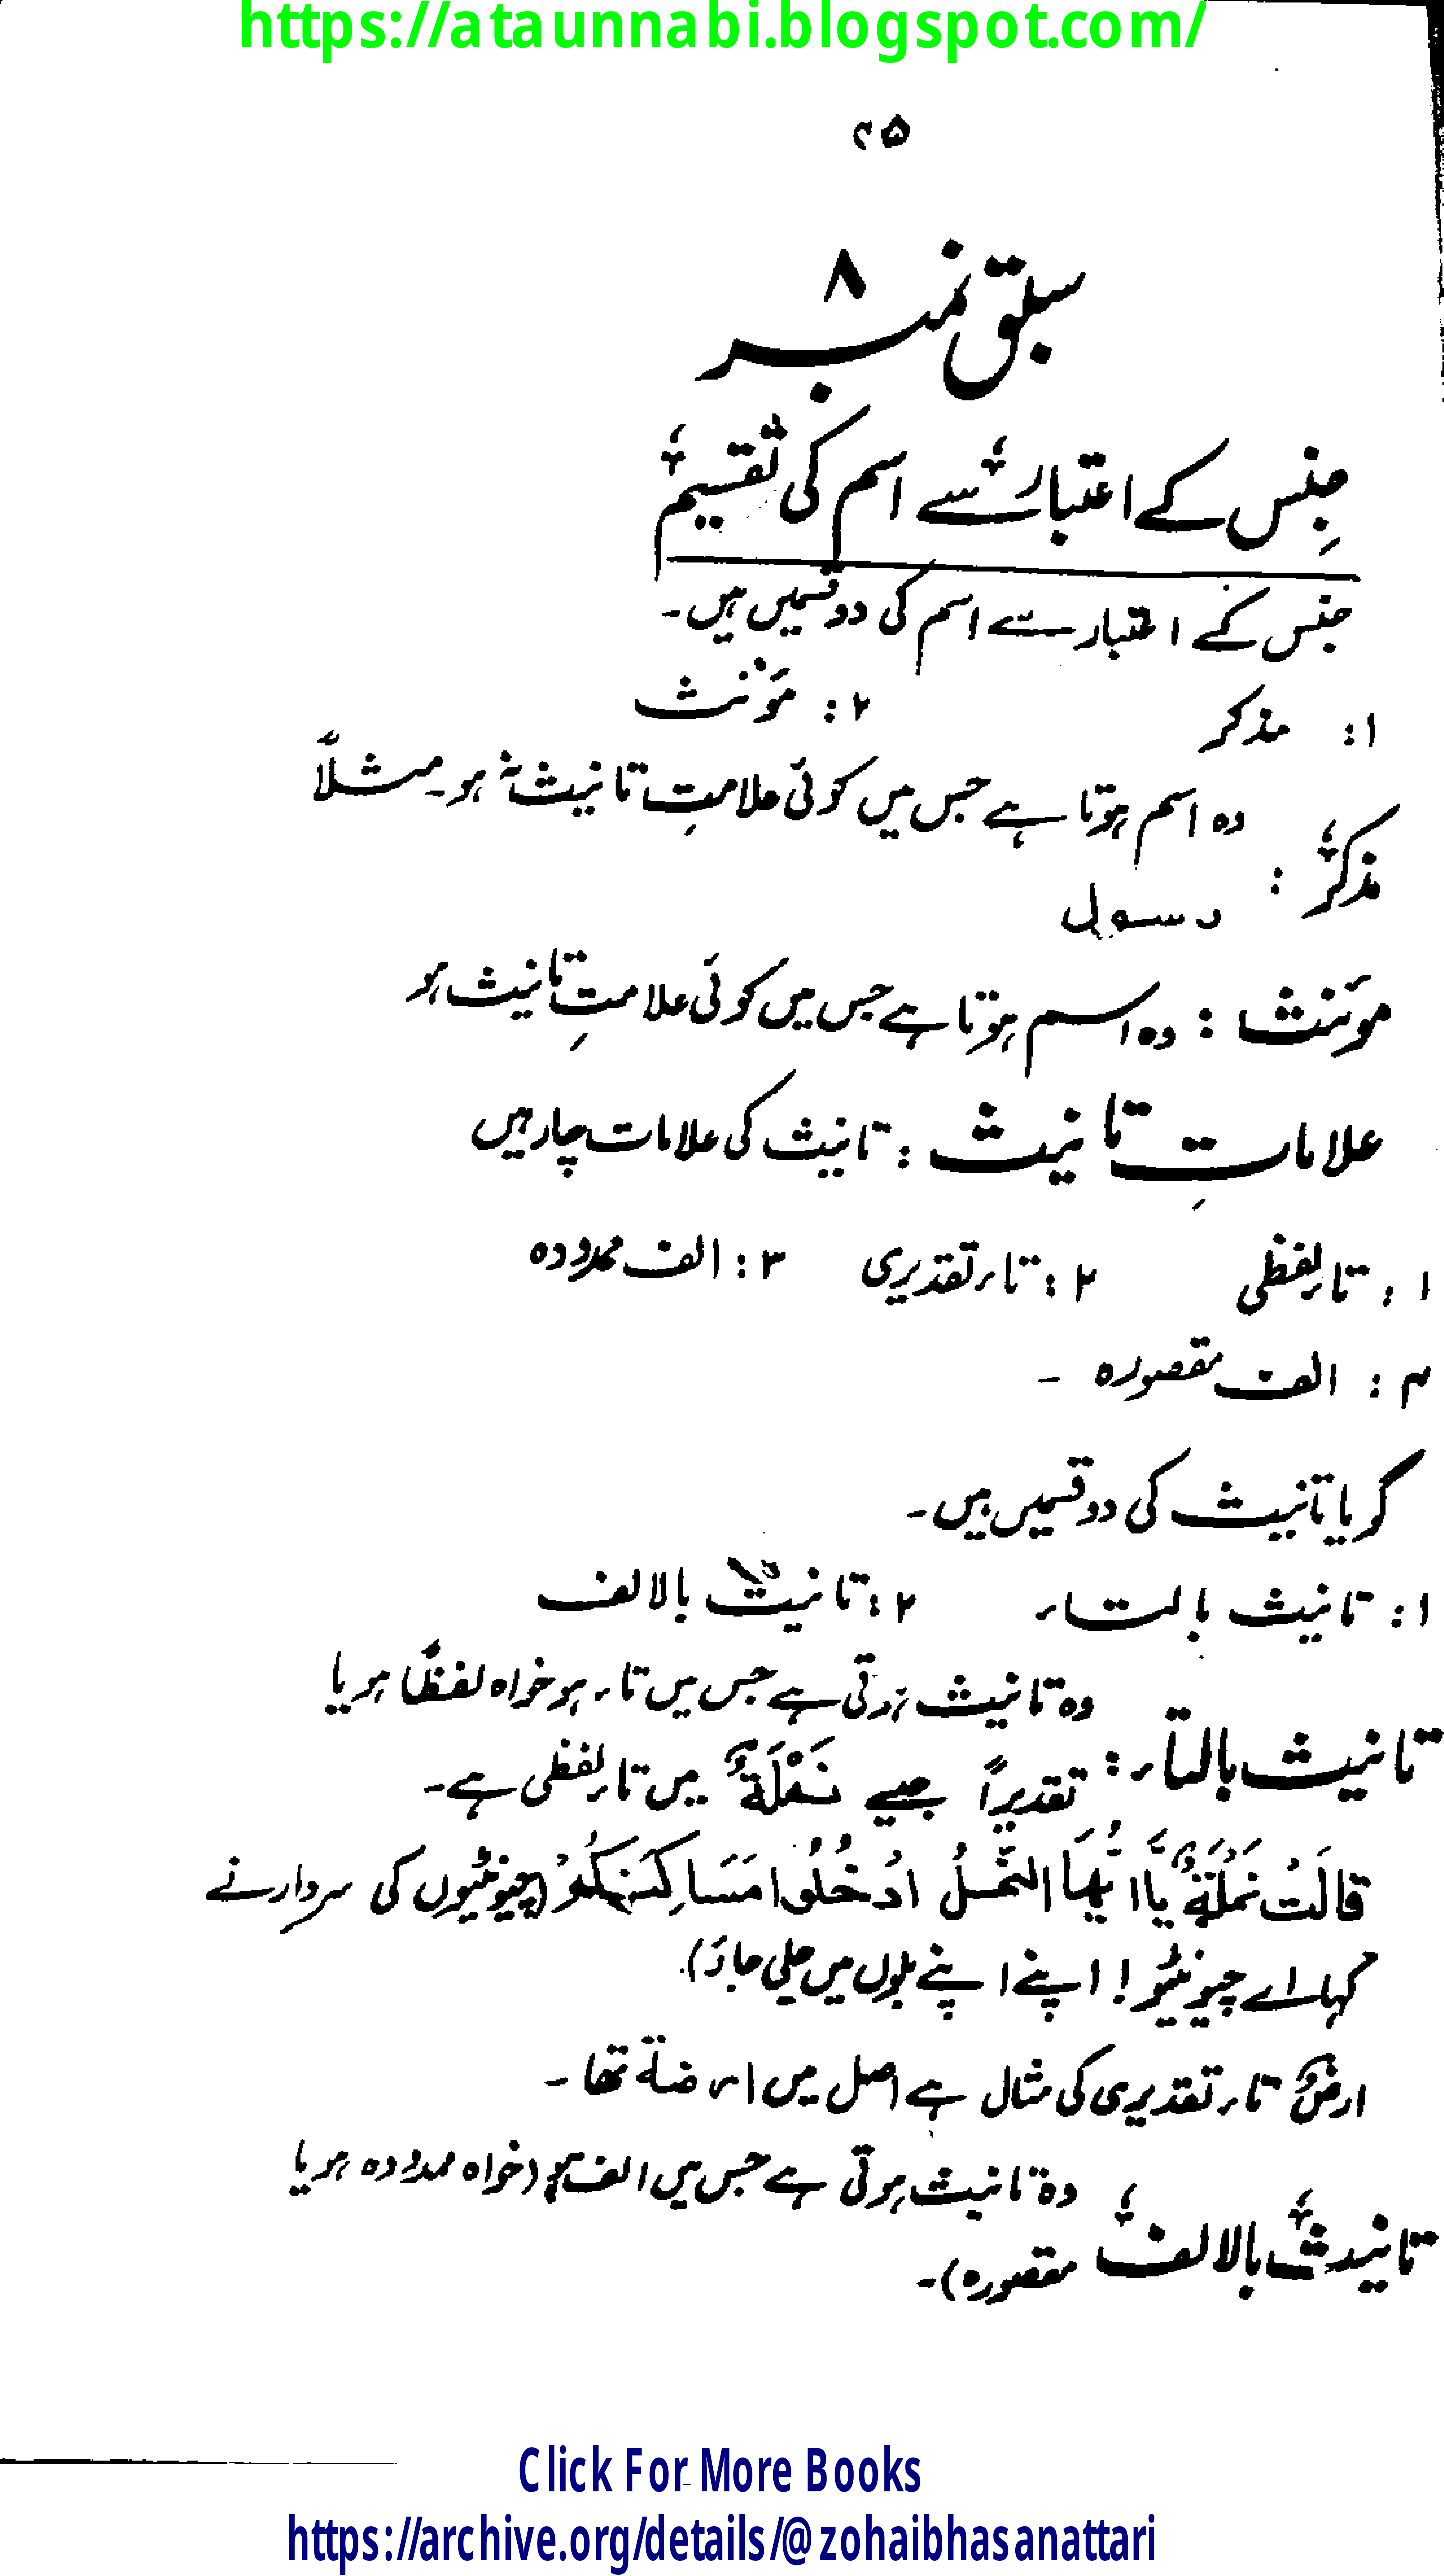 https://ataunnabi.blogspot.com/
۴۵
سبق نمبر ۸
جِنس کے اعتبار سے اسم کی تقسیم
جنس کے اعتبار سے اسم کی دو قسمیں ہیں۔
۱: مذکر ۲: مؤنث
مذکر : وہ اسم ہوتا ہے جس میں کوئی علامتِ تانیث نہ ہو۔ مثلاً
رسول
مؤنث : وہ اسم ہوتا ہے جس میں کوئی علامتِ تانیث ہو
علاماتِ تانیث : تانیث کی علامات چار ہیں
۱: تاء لفظی ۲: تاء تقدیری ۳: الف ممدودہ
۴: الف مقصورہ ۔
گویا تانیث کی دو قسمیں ہیں۔
۱: تانیث بالتاء ۲: تانیث بالالف
تانیث بالتاء : وہ تانیث ہوتی ہے جس میں تاء ہو خواہ لفظًا ہو یا
تقدیرًا جیسے نَمْلَةٌ میں تاء لفظی ہے۔
قَالَتْ نَمْلَةٌ يَّااَيُّهَا النَّمْلُ ادْخُلُوا مَسَاكِنَكُمْ (چیونٹیوں کی سردار نے
کہا اے چیونٹیو! اپنے اپنے بلوں میں چلی جاؤ)
ارضٌ تاء تقدیری کی مثال ہے اصل میں ارضة تھا ۔
تانیث بالالف وہ تانیث ہوتی ہے جس میں الف ہو (خواہ ممدودہ ہو یا
مقصورہ)۔
Click For More Books
https://archive.org/details/@zohaibhasanattari